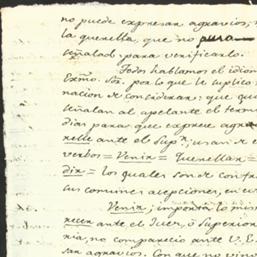 no puede expresar agravios,
la querella, que no para
señalado, para verificarlo.
Todos hablamos el idiom
Exmo. Sor. por lo que le suplico,
nacion de considerar; que, qu
señalan al apelante el term
dias para que exprese agra
relle ante el Supr., usan de e
verbos = Venir = Querellar =
dir = los quales son de contra
sus comunes acepciones, en cu
Venir; importa lo mis
recer ante el Juez, o Superior
ria, no comparecio ante V. E.
sar agravios. Con que no vino